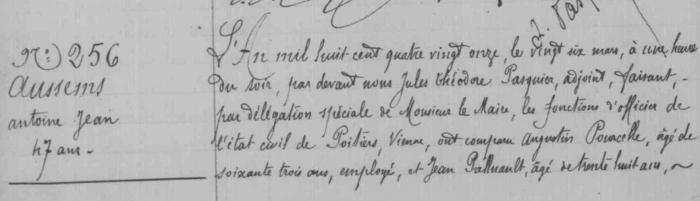 N° 256
Aussems
antoine Jean
47 ans -
L'An mil huit cent quatre vingt onze, le vingt six mars, à une heure
du soir, par devant nous Jules Théodore Pasquier, adjoint, faisant, -
par délégation spéciale de Monsieur le Maire, les fonctions d'officier de
l'état civil de Poitiers, Vienne, ont comparu Augustin Pouacelle, âgé de
soixante trois ans, employé, et Jean Palluault, âgé de trente huit ans, ~